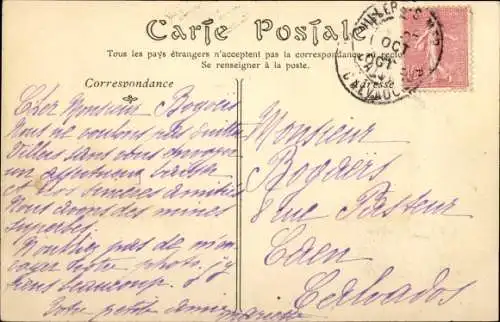 Carte Postale
Tous les pays étrangers n'acceptent pas la correspondance au recto
Se renseigner à la poste.
Correspondance
Adresse
VILLERS S MER
OCT
CALVADOS
Cher Monsieur Bogaers
Nous ne voulons pas quitter
Villers sans vous envoyer
un affectueux
et nos sincères amitiés
Nous avons des mines
superbes
N'oubliez pas de m'en
votre photo. j'y
tiens beaucoup.
Votre petite amie
Monsieur
Bogaers
8 rue Pasteur
Caen
Calvados